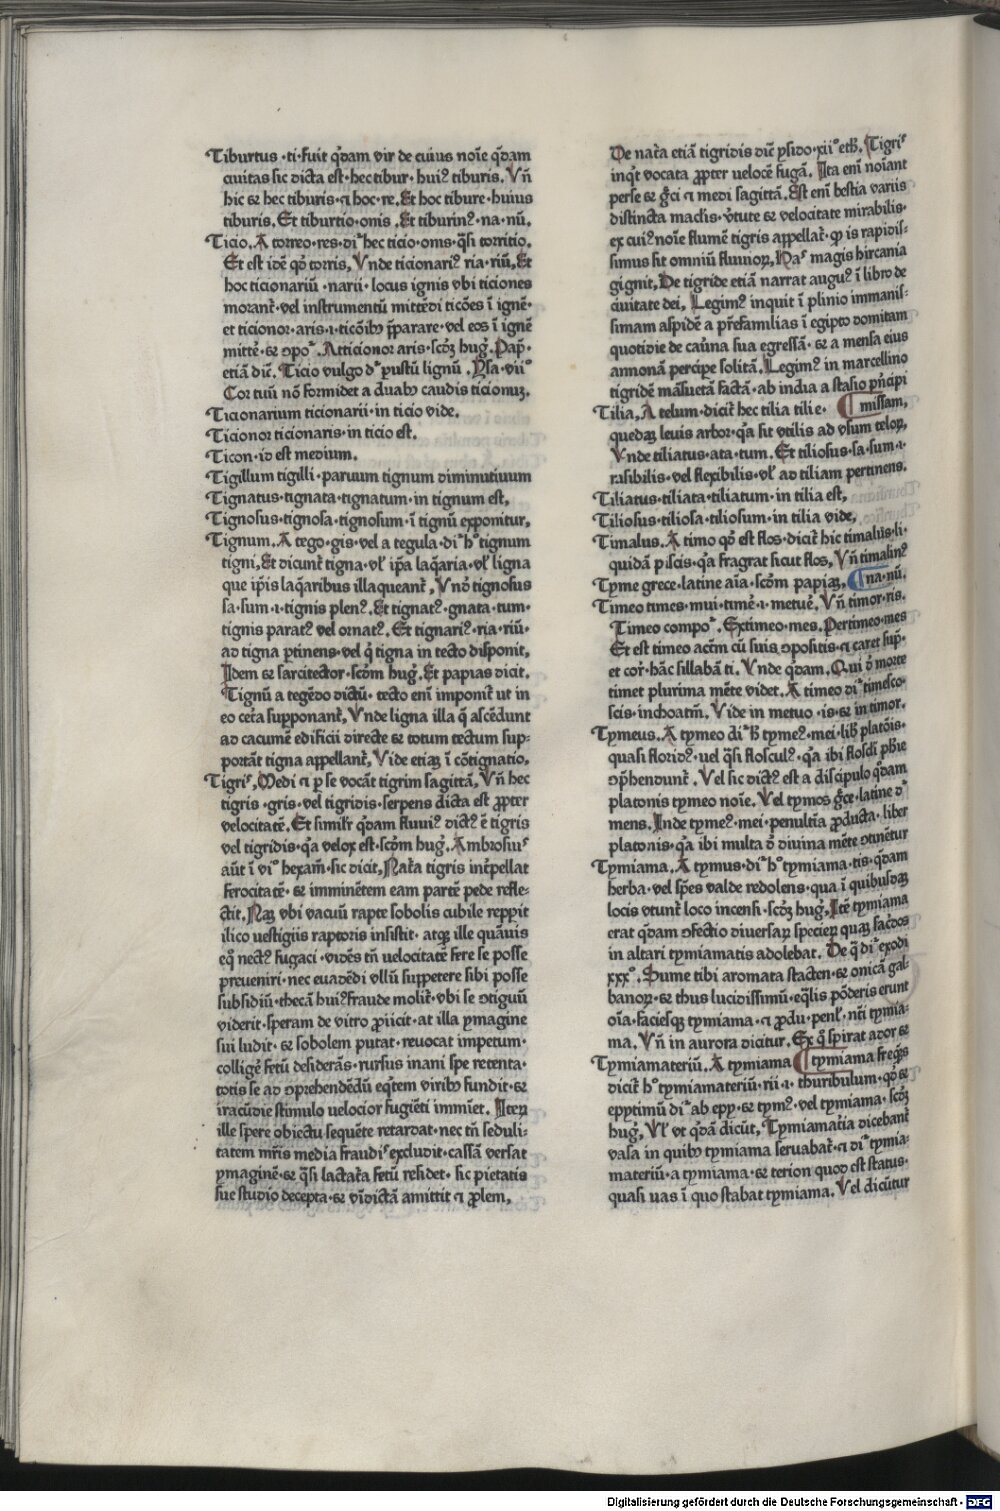 Tiburtus ·ti·fuit q̄dam vir de cuius noīe q̄dam
ciuitas sic dicta est·hec tibur·huiꝰ tiburis. Vn̄
hic ⁊ hec tiburis·⁊ hoc·re. Et hoc tibure·huius
tiburis. Et tiburtio·onis. Et tiburinꝰ·na·nū.
Ticio. A torreo·res·di͛ hec ticio·onis·q̄si torritio.
Et est idē qō torris. Vnde ticionariꝰ ria·riū. Et
hoc ticionariū ·narii·locus ignis vbi ticiones
morant᷑·vel instrumentū mittēdi ticōes ī ignē·
et ticionor·aris·i·ticōibꝰ p̄parare·vel eos ī ignē
mitte᷑·⁊ ↄpo͛. Atticionor aris·scd̄ꝫ hug̛. Pap̄·
etiā dic̄. Ticio vulgo d͛ ꝑustū lignū. ysa·vii°
Cor tuū nō formidet a duabꝰ caudis ticionuꝫ.
Ticionarium ticionarii·in ticio vide.
Ticionor ticionaris·in ticio est.
Ticon·id est medium.
Tigillum tigilli·paruum tignum diminutiuum
Tignatus·tignata·tignatum·in tignum est.
Tignosus·tignosa·tignosum·ī tignū exponitur.
Tignum. A tego·gis·vel a tegula·di͛ h° tignum
tigni. Et dicunt᷑ tigna·vl̛ ip̄a laq̄aria·vl̛ ligna
que ip̄is laq̄aribus illaqueant᷑. Vnō tignosus
sa·sum·i·tignis plenꝰ. Et tignatꝰ·gnata·tum·
tignis paratꝰ vel ornatꝰ. Et tignariꝰ·ria·riū·
ad tigna ꝑtinens·vel q̄ tigna in tecto disponit.
Idem ⁊ sarcitector·scd̄m hug̛. Et papias dicit.
Tignū a tegēdo dictū·tecto enī imponit᷑ ut in
eo cet᷑a supponant᷑. Vnde ligna illa q̄ ascēdunt
ad cacumē edificii directe ⁊ totum tectum sup-
portāt tigna appellant᷑. Vide etiaꝫ ī cōtignatio.
Tigris. Medi ⁊ ꝑse vocāt tigrim sagittā. Vn̄ hec
tigris·gris·vel tigridis·serpens dicta est ꝓpter
velocitatē. Et simil͛r q̄dam fluuiꝰ dictꝰ ē tigris
vel tigridis·q̄a velox est·scd̄m hug̛. Ambrosius
aūt ī vi° hexam̄·sic dicit. Nat᷑a tigris int᷑pellat
ferocitatē·⁊ imminētem eam partē pede refle-
ctit. Naꝫ vbi vacuū rapte sobolis cubile reppit
ilico uestigiis raptoris insistit·atqꝫ ille quāuis
eq̄ nectꝰ fugaci·vidēs tn̄ velocitatē fere se posse
preueniri·nec euadēdi vllū suppetere sibi posse
subsidiū·thecā huiꝰ fraude molit᷑·vbi se ↄtiguū
viderit·speram de vitro ꝓiicit·at illa ymagine
sui ludit·⁊ sobolem putat·reuocat impetum·
collige᷑ fetū desiderās·rursus inani spe retenta·
totis se ad ↄprehendēdū eq̄tem viribꝰ fundit·⁊
iracūdie stimulo velocior fugiēti immīet. Iterꝫ
ille spere obiectu sequēte retardat·nec tn̄ seduli-
tatem mr̄is media fraudis excludit·cassā versat
ymaginē·⁊ q̄si lactat᷑a fetū residet·sic pietatis
sue studio decepta·⁊ vīdictā amittit ⁊ ꝓlem.
De nat᷑a etiā tigridis dic̄ ysido·xii° eth̄. Tigris
inq̛t vocata ꝓpter velocē fugā. Ita enī noīant
perse ⁊ g̛ci ⁊ medi sagittā. Est enī bestia variis
distincta maclis·v᷑tute ⁊ velocitate mirabilis·
ex cuiꝰ noīe flumē tigris appellat᷑·ꝙ is rapidis-
simus sit omniū fluuioꝝ. Has magis hircania
gignit. De tigride etiā narrat auguꝰ ī libro de
ciuitate dei. Legimꝰ inquit ī plinio immanis-
simam aspidē a pr̄efamilias ī egipto domitam
quotidie de cau᷑na sua egressā·⁊ a mensa eius
annonā percipe solitā. Legimꝰ in marcellino
tigridē māsuetā factā·ab india a stasio pn̄cipi
Tilia. A telum·dicit᷑ hec tilia tilie· ¶ missam.
quedaꝫ leuis arbor·q̄a sit vtilis ad vsum teloꝝ.
Vnde tiliatus·ata·tum. Et tiliosus·sa·sum·i·
rasibilis·vel flexibilis·vl̛ ad tiliam pertinens.
Tiliatus·tiliata·tiliatum·in tilia est.
Tiliosus·tiliosa·tiliosum·in tilia vide.
Timalus. A timo qō est flos·dicit᷑ hic timalus·li·
quidā piscis·q̄a fragrat sicut flos. Vn̄ timalinꝰ
Tyme grece·latine aīa·scd̄m papiaꝫ. ¶ na·nū.
Timeo times·mui·time᷑·i·metue᷑. Vn̄ timor·ris.
Timeo compo͛. Extimeo·mes. Pertimeo·mes
Et est timeo actm̄ cū suis ↄpositis·⁊ caret sup̄·
et cor᷑·hāc sillabā ti. Vnde q̄dam. Qui d̄ morte
timet plurima mēte videt. A timeo di͛ timesco·
scis·inchoatm̄. Vide in metuo·is·⁊ in timor.
Tymeus. A tymeo di͛ h̄ tymeꝰ·mei·lib᷑ platōis·
quasi floridꝰ·uel q̄si flosculꝰ·q̄a ibi flosculi ph̄ie
ↄp̄hendunt᷑. Vel sic dictꝰ est a discipulo q̄dam
platonis tymeo noīe. Vel tymos g̛ce·latine d͛
mens. Inde tymeꝰ·mei·penultīa ꝓducta·liber
platonis·q̄a ibi multa d̄ diuina mēte ↄtinētur
Tymiama. A tymus·di͛ h° tymiama·tis·q̄dam
herba·vel sp̄es valde redolens·qua ī quibusdaꝫ
locis vtunt᷑ loco incensi·scd̄ꝫ hug̛. Itē tymiama
erat q̄dam ↄfectio diuersaꝝ specieꝝ quaꝫ sac̄dos
in altari tymiamatis adolebat. De q̄ di͛ exodi
xxx°. Sume tibi aromata stacten·⁊ onicā gal-
banoꝝ·⁊ thus lucidissimū·eq̄lis pōderis erunt
oīa·faciesqꝫ tymiama·⁊ ꝓdu·penl̛·nt̄i tymia-
ma. Vn̄ in aurora dicitur. Ex q̄ spirat ador ⁊
Tymiamateriū. A tymiama ¶ tymiama freq̄ns
dicit᷑ h° tymiamateriū·rii·i·thuribulum·qō ⁊
epytimū di͛ ab epy·⁊ tymꝰ·vel tymiama·scd̄ꝫ
hug̛. Vl̛ vt q̄dā dicūt. Tymiamat᷑ia dicebant᷑
vasa in quibꝰ tymiama seruabat᷑·⁊ di͛ tymia-
materiū·a tymiama·⁊ terion quod est status·
quasi uas ī quo stabat tymiama. Vel dicūtur
Digitalisierung gefördert durch die Deutsche Forschungsgemeinschaft - DFG